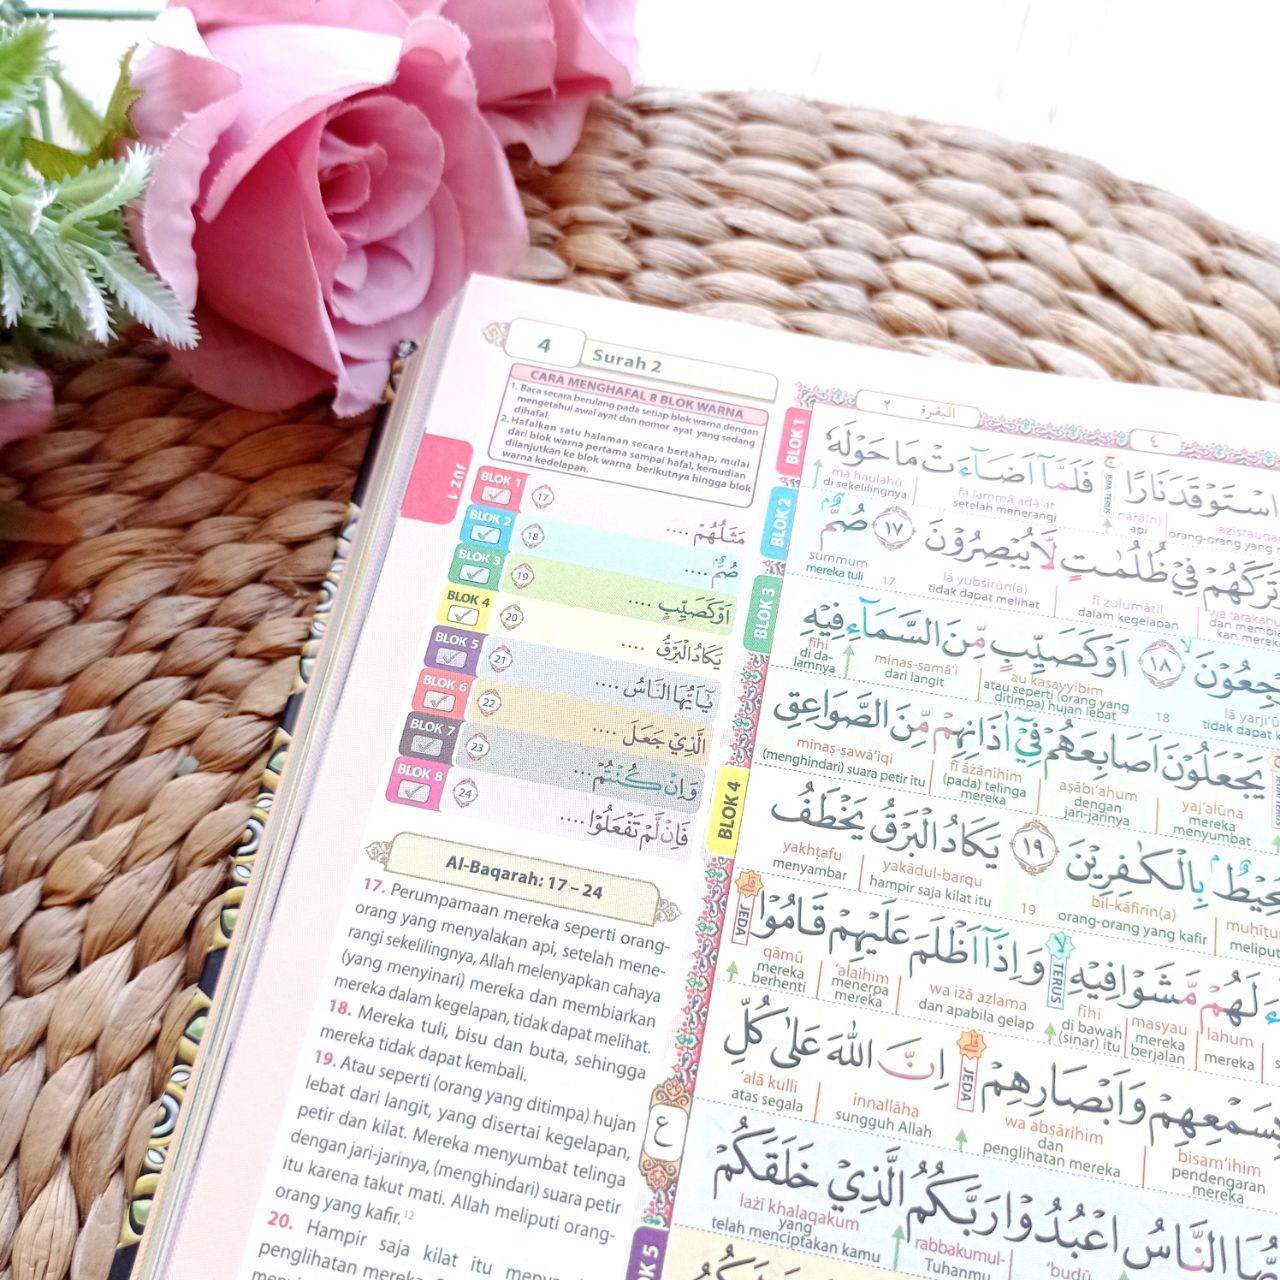 4
Surah 2
CARA MENGHAFAL 8 BLOK WARNA
1. Baca secara berulang pada setiap blok warna dengan
mengetahui awal ayat dan nomor ayat yang sedang
dihafal.
2. Hafalkan satu halaman secara bertahap, mulai
dari blok warna pertama sampai hafal, kemudian
dilanjutkan ke blok warna berikutnya hingga blok
warna kedelapan.
JUZ 1
BLOK 1 17 مَثَلُهُمْ ....
BLOK 2 18 صُمٌّ ....
BLOK 3 19 اَوْ كَصَيِّبٍ ....
BLOK 4 20 يَكَادُ الْبَرْقُ ....
BLOK 5 21 يٰٓاَيُّهَا النَّاسُ ....
BLOK 6 22 الَّذِيْ جَعَلَ ....
BLOK 7 23 وَاِنْ كُنْتُمْ ...
BLOK 8 24 فَاِنْ لَّمْ تَفْعَلُوْا ....
Al-Baqarah: 17 – 24
17. Perumpamaan mereka seperti orang-
orang yang menyalakan api, setelah mene-
rangi sekelilingnya, Allah melenyapkan cahaya
(yang menyinari) mereka dan membiarkan
mereka dalam kegelapan, tidak dapat melihat.
18. Mereka tuli, bisu dan buta, sehingga
mereka tidak dapat kembali.
19. Atau seperti (orang yang ditimpa) hujan
lebat dari langit, yang disertai kegelapan,
petir dan kilat. Mereka menyumbat telinga
dengan jari-jarinya, (menghindari) suara petir
itu karena takut mati. Allah meliputi orang-
orang yang kafir.12
20. Hampir saja kilat itu
penglihatan mereka.
البقرة ٢
٤
BLOK 1
اسْتَوْقَدَ نَارًا ۚ فَلَمَّآ اَضَاۤءَتْ مَا حَوْلَهٗ
nāra(n) fa lammā aḍā'at mā ḥaulahū
api setelah menerangi di sekelilingnya
BLOK 2
تَرَكَهُمْ فِيْ ظُلُمٰتٍ لَّا يُبْصِرُوْنَ ١٧ صُمٌّ
wa tarakahum fī ẓulumātil lā yubṣirūn(a) 17 ṣummum
dalam kegelapan tidak dapat melihat mereka tuli
BLOK 3
١٨ اَوْ كَصَيِّبٍ مِّنَ السَّمَاۤءِ فِيْهِ
18 au kaṣayyibim minas-samā'i fīhi
tidak dapat atau seperti (orang yang ditimpa) hujan lebat dari langit di da-lamnya
يَجْعَلُوْنَ اَصَابِعَهُمْ فِيْٓ اٰذَانِهِمْ مِّنَ الصَّوَاعِقِ
yaj'alūna aṣābi'ahum fī āżānihim minaṣ-ṣawā'iqi
mereka menyumbat dengan jari-jarinya (pada) telinga mereka (menghindari) suara petir itu
BLOK 4
بِالْكٰفِرِيْنَ ١٩ يَكَادُ الْبَرْقُ يَخْطَفُ
bil-kāfirīn(a) 19 yakādul-barqu yakhṭafu
orang-orang yang kafir hampir saja kilat itu menyambar
لَهُمْ مَّشَوْا فِيْهِ وَاِذَآ اَظْلَمَ عَلَيْهِمْ قَامُوْا
TERUS
JEDA
lahum masyau fīhi wa iżā aẓlama 'alaihim qāmū
mereka mereka berjalan di bawah (sinar) itu dan apabila gelap menerpa mereka mereka berhenti
بِسَمْعِهِمْ وَاَبْصَارِهِمْ اِنَّ اللّٰهَ عَلٰى كُلِّ
JEDA
bisam'ihim wa abṣārihim innallāha 'alā kulli
pendengaran mereka dan penglihatan mereka sungguh Allah atas segala
ع
النَّاسُ اعْبُدُوْا رَبَّكُمُ الَّذِيْ خَلَقَكُمْ
'budū rabbakumul- lażī khalaqakum
Tuhanmu yang telah menciptakan kamu